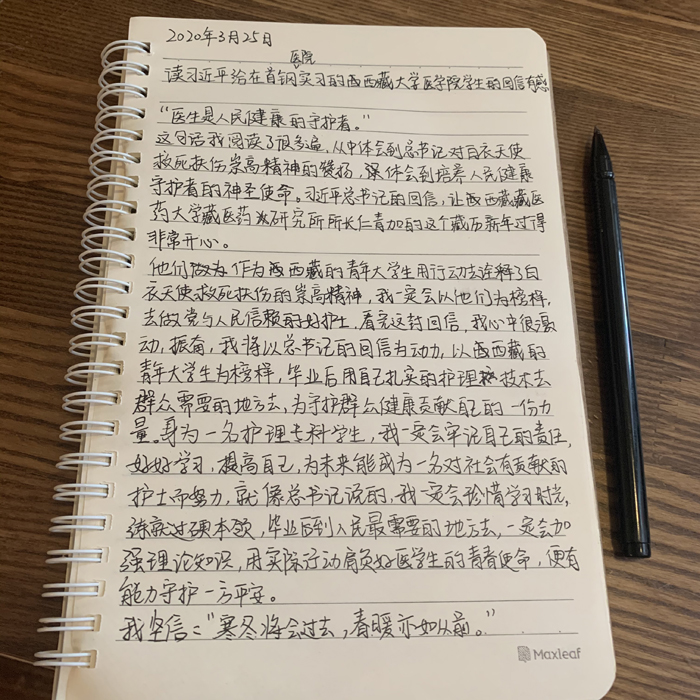 2020年3月25日
医院
读习近平给在首钢实习的西藏大学医学院学生的回信有感
“医生是人民健康的守护者。”
这句话我阅读了很多遍,从中体会到总书记对白衣天使
救死扶伤崇高精神的赞扬,深体会到培养人民健康
守护者的神圣使命。习近平总书记的回信,让西藏藏医
药大学藏医药研究所所长仁青加的这个藏历新年过得
非常开心。
他们作为西藏的青年大学生用行动去诠释了白
衣天使救死扶伤的崇高精神,我一定会以他们为榜样,
去做党与人民信赖的好护士,看完这封回信,我心中很激
动,振奋,我将以总书记的回信为动力,以西藏的
青年大学生为榜样,毕业后用自己扎实的护理技术去
群众需要的地方去,为守护群众健康贡献自己的一份力
量。身为一名护理专科学生,我一定会牢记自己的责任,
好好学习,提高自己,为未来能成为一名对社会有贡献的
护士而努力,就像总书记说的,我一定会珍惜学习时光,
练就过硬本领,毕业后到人民最需要的地方去,一定会加
强理论知识,用实际行动肩负好医学生的青春使命,便有
能力守护一方平安。
我坚信:“寒冬将会过去,春暖亦如从前。”
Maxleaf